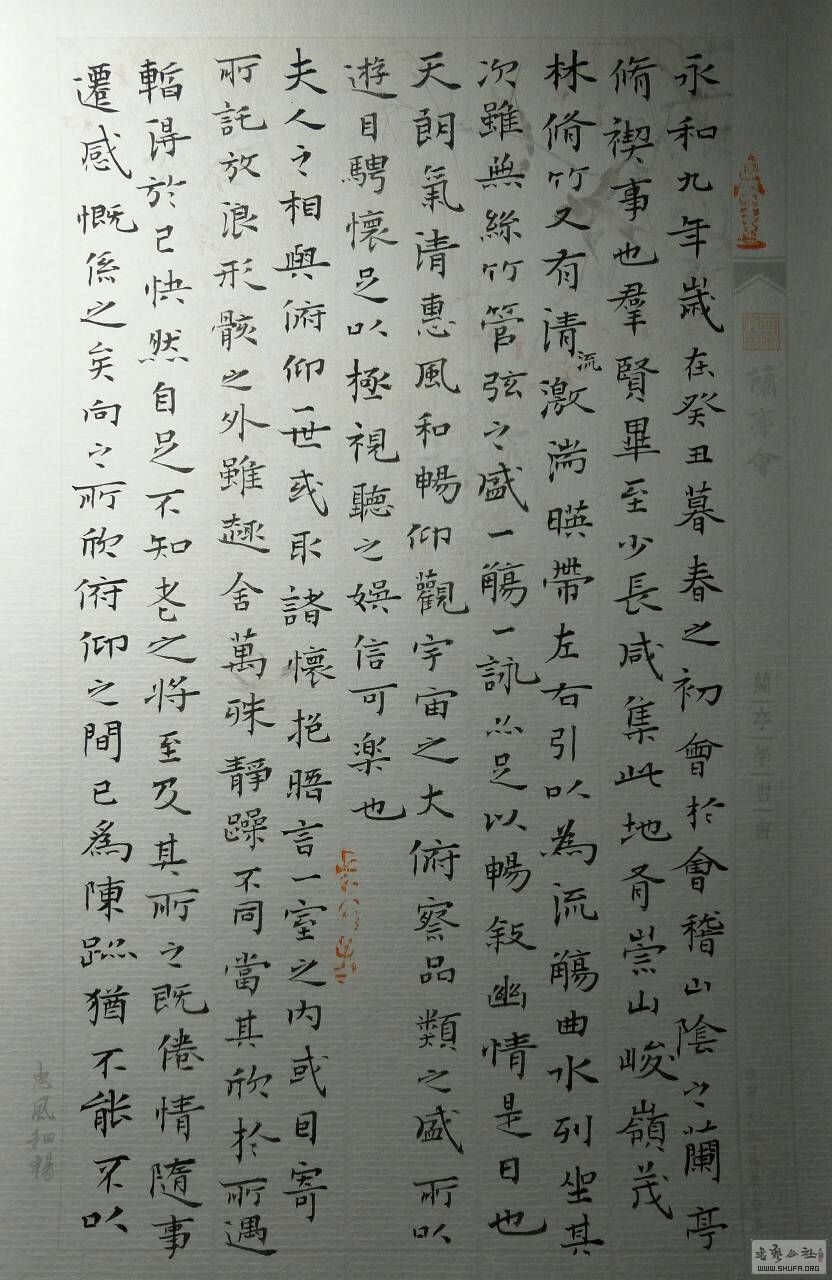 永和九年歲在癸丑暮春之初會於會稽山陰之蘭亭
脩禊事也羣賢畢至少長咸集此地有崇山峻嶺茂
林脩竹又有清流激湍暎帶左右引以為流觴曲水列坐其
次雖無絲竹管弦之盛一觴一詠亦足以暢敍幽情是日也
天朗氣清惠風和暢仰觀宇宙之大俯察品類之盛所以
遊目騁懷足以極視聽之娛信可楽也
夫人之相與俯仰一世或取諸懷抱晤言一室之內或因寄
所託放浪形骸之外雖趣舍萬殊靜躁不同當其欣於所遇
暫得於己快然自足不知老之將至及其所之既倦情隨事
遷感慨係之矣向之所欣俯仰之間已為陳跡猶不能不以
蘭亭會
蘭亭學習會
惠風和暢
書藝公社
WWW.SHUFA.ORG